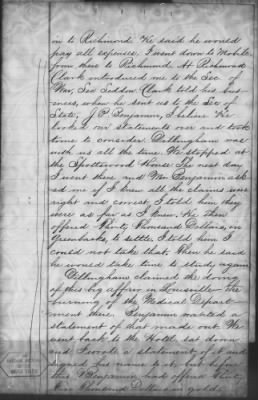 in to Richmond. He said he would
pay all expences. I went down to Mobile
from there to Richmond. At Richmond
Clark introduced me to the Sec of
War, Sec Seddon. Clark told his bus-
iness, when he sent us to the Sec of
State, J. P. Benjamin, I believe. He
looked our statements over and took
time to consider. Dillingham was
with us all the time. We stopped at
the Spotteswood House. The next day
I went there and Mr Benjamin ask-
ed me if I knew all the claims were
right and correct. I told him they
were as far as I knew. He then
offered Thirty Thousand Dollars, in
Greenbacks, to settle. I told him I
could not take that. Then he said
he would take time to study again
Dillingham claimed the doing
of this big affair in Louisville the
burning of the Medical Depart-
ment there. Benjamin wanted a
statement of that made out. We
went back to the Hotel sat down
and I wrote a statement of it and
signed his name to it, but before
this Benjamin had offered Thirty
Five Thousand Dollars in gold.